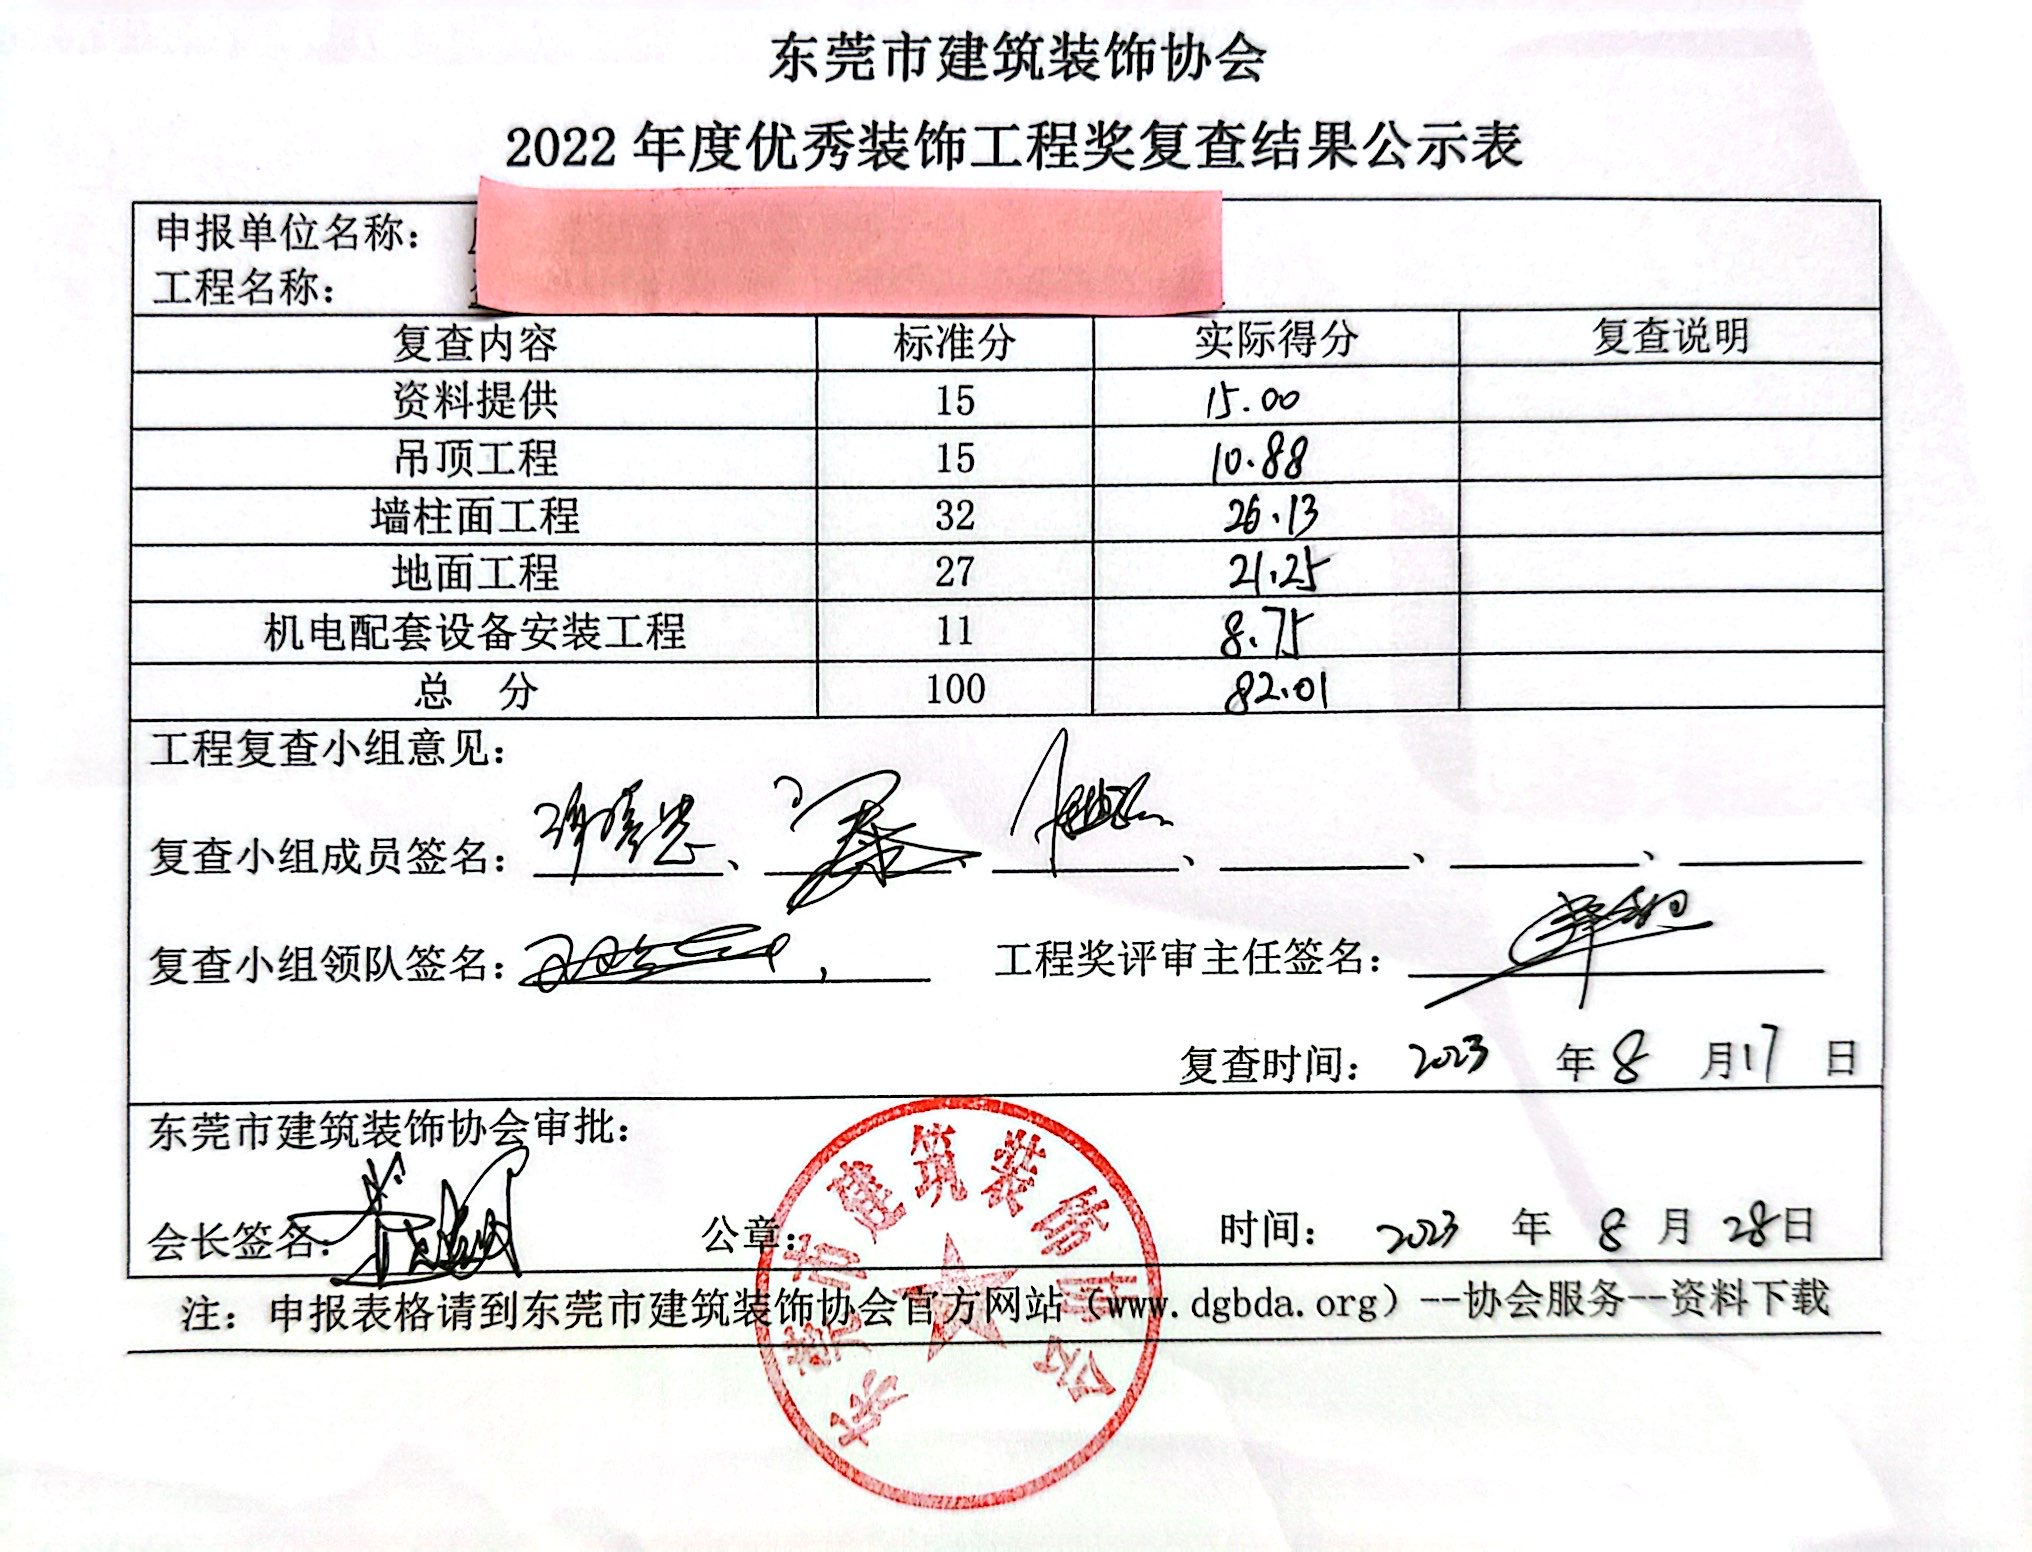 东莞市建筑装饰协会
2022 年度优秀装饰工程奖复查结果公示表
申报单位名称：
工程名称：
复查内容 标准分 实际得分 复查说明
资料提供 15 15.00
吊顶工程 15 10.88
墙柱面工程 32 26.13
地面工程 27 21.25
机电配套设备安装工程 11 8.75
总 分 100 82.01
工程复查小组意见：
复查小组成员签名：
复查小组领队签名： 工程奖评审主任签名：
复查时间： 2023 年 8 月 17 日
东莞市建筑装饰协会审批：
会长签名： 公章： 时间： 2023 年 8 月 28 日
注：申报表格请到东莞市建筑装饰协会官方网站（www.dgbda.org）--协会服务--资料下载
东莞市建筑装饰协会